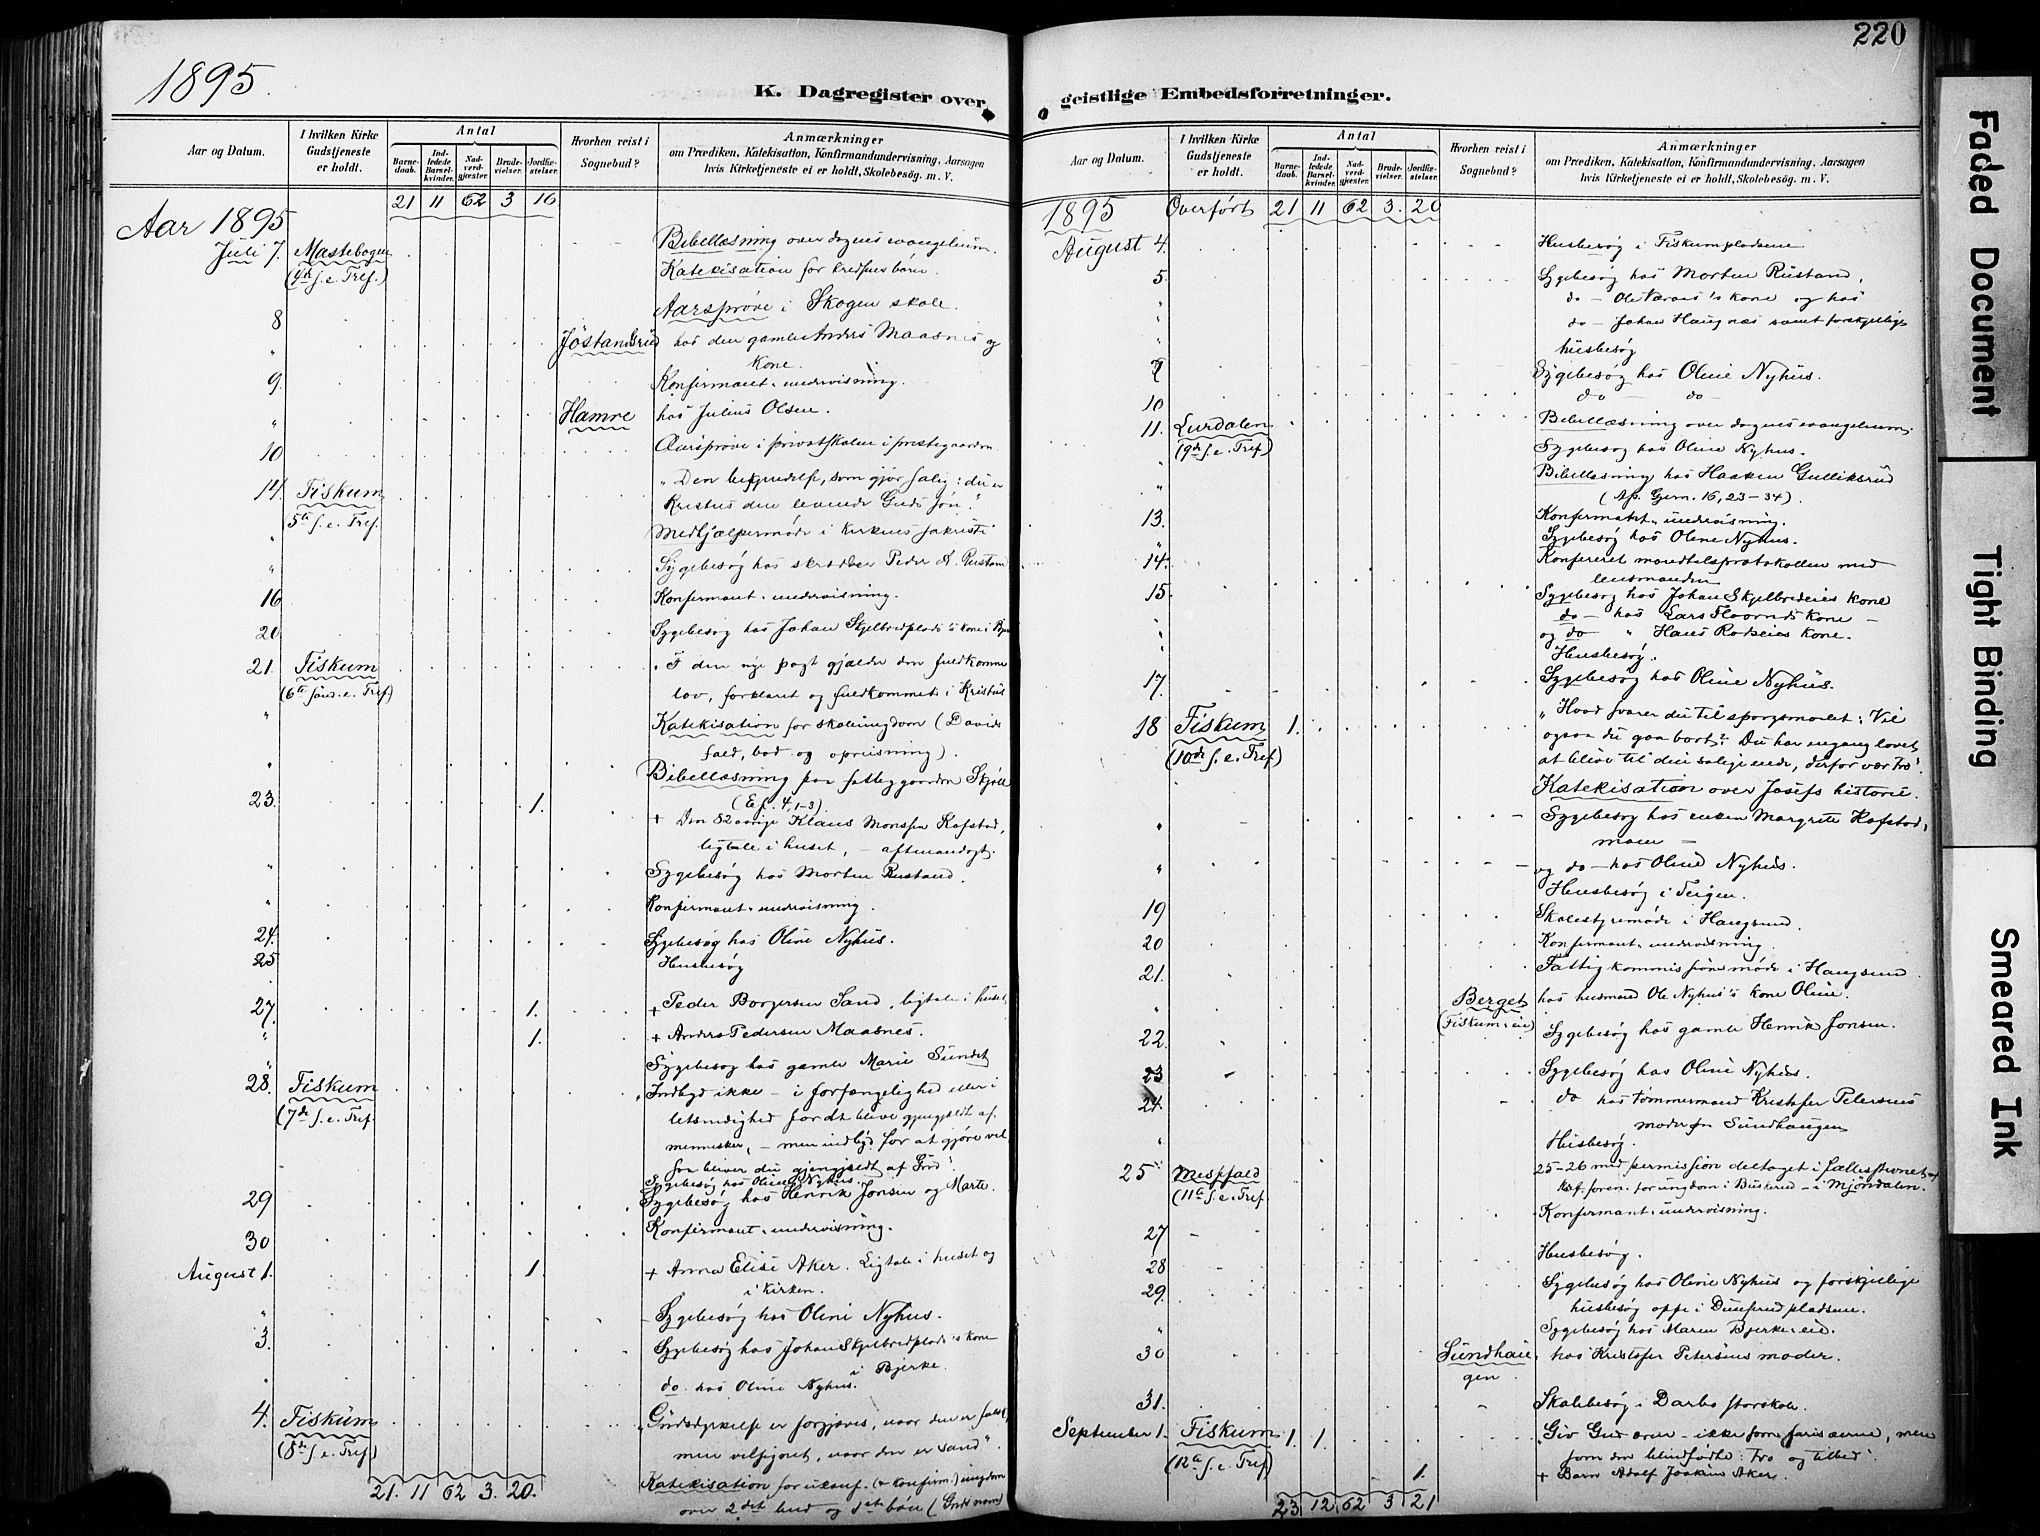 1895.
K. Dagregister over
Aar og Datum.
I hvilken Kirke Gudstjeneste er holdt.
Antal
Barnedaab.
Indledede Barselkvinder.
Nadverdgjæster.
Brudevielser.
Jordfæstelser.
Hvorhen reist i Sognebud?
Anmærkninger
om Prædiken, Katekisation, Konfirmandundervisning, Aarsagen
hvis Kirketjeneste ei er holdt, Skolebesøg. m. V.
21 11 62 3 16
Aar 1895
Juli 7. Mastebogen Bibellæsning over dagens evangelium.
(4de s. e. Tref.) Katekisation for kredsens børn.
8 Aarsprøve i Skogen skole.
" Jøstandsrud hos den gamle Anders Maasnes og
kone.
9. Konfirmant-undervisning.
" Hamre hos Julius Olsen.
10 Aarsprøve i privatskolen i prestegaarden
14. Fiskum "Den begyndelse, som gjør salig: du er
5te s. e. Tref. Kristus den levende Guds søn."
" Medhjælpermøde i kirkens sakristi
" Sygebesøg hos skrædder Peder A. Rustand
16 Konfirmant-undervisning.
20 Sygebesøg hos Johan Skjelbredplads's kone i
21. Fiskum "I den nye pagt gjælder den fuldkomne
(6te sønd. e. Tref) lov, forklaret og fuldkommet i Kristus
" Katekisation for skoleungdom (Davids
fald, bod og opreisning).
" Bibellæsning paa fattiggaarden Skjøll
(Ef. 4, 1-3).
23. 1. + Den 82 aarige Klaus Monssen Kofstad,
ligtale i huset, - aftmandagt.
" Sygebesøg hos Morten Rustand.
" Konfirmant-undervisning.
24. Sygebesøg hos Oline Nyhus.
25 Husbesøg
27. 1. + Peder Borgersen Sand, ligtale i huset
" 1. + Anders Pedersen Maasnes.
" Sygebesøg hos gamle Marie Sundet
28. Fiskum "Indbyd ikke - i forfængelighed eller i
(7de s. e. Tref. letsindighed for at blive gjengjeldt af
mennesker, - men indbyd for at gjøre vel,
saa bliver du gjengjeldt af Gud".
Sygebesøg hos Oline Nyhus.
29 Sygebesøg hos Henrik Jonsen og Marte.
30 Konfirmant-undervisning.
August 1. 1. + Anna Elise Aker. Ligtale i huset og
i kirken.
" Sygebesøg hos Oline Nyhus.
3. Sygebesøg hos Johan Skjelbredplads's kone
i Bjerke.
" do. hos Oline Nyhus.
4. Fiskum "Gudsdyrkelse er forgjæves, naar den er falsk,
(8de s. e. Tref) men velsignet, naar den er sand".
Katekisation for ukonf. (& konfirm.) ungdom
over 2det bud og 1ste bøn (Guds navn)
21. 11 62 3. 20.
220
geistlige Embedsforretninger.
Aar og Datum.
I hvilken Kirke Gudstjeneste er holdt.
Antal
Barnedaab.
Indledede Barselkvinder.
Nadverdgjæster.
Brudevielser.
Jordfæstelser.
Hvorhen reist i Sognebud?
Anmærkninger
om Prædiken, Katekisation, Konfirmandundervisning, Aarsagen
hvis Kirketjeneste ei er holdt, Skolebesøg. m. V.
1895 Overført 21 11 62 3. 20
August 4. Husbesøg i Fiskumpladsene
5. Sygebesøg hos Morten Rustand,
" do - Ole Væraas's kone og hos
" do - Johan Haugnæs samt forskjellige
" husbesøg
7 Sygebesøg hos Oline Nyhus.
10 do - do -
11. Lurdalen Bibellæsning over dagens evangelium.
(9de s. e. Tref) Sygebesøg hos Oline Nyhus.
" Bibellæsning hos Haaken Gulliksrud
" (Ap. Gjern. 16, 23-34).
13. Konfirmant-undervisning.
" Sygebesøg hos Oline Nyhus.
14. Konfereret mandtalsprotokollen med
lensmanden
15. Sygebesøg hos Johan Skjelbredeies kone
" do - hos Lars Floornds kone -
" og do " Hans Rodseies kone.
" Husbesøg.
17. Sygebesøg hos Oline Nyhus.
18 Fiskum 1. "Hvad svarer du til spørgsmaalet: Vil
(10de s. e. Tref) ogsaa du gaa bort? Du har engang lovet
at blive til din salige ende, derfor vær tro".
Katekisation over Josefs historie.
" Sygebesøg hos enken Margrete Hofstad,
moen -
" og do - hos Oline Nyhus.
Husbesøg i Teigen.
19 Skolestyremøde i Haugsund.
20 Konfirmant-undervisning.
21. Fattigkommissionsmøde i Haugsund
" Berget hos husmand Ole Nyhus's kone Oline.
(Fiskum-eie)
22. Sygebesøg hos gamle Henrik Jonsen.
23 Sygebesøg hos Oline Nyhus.
24. do hos tømmermand Kristofer Petersens
moder fra Sundhaugen
" Husbesøg.
25 Messfald 25-26 med permission deltaget i fællesstevnet af
(11te s. e. Tref. kr. foren. for ungdom i Buskerud - i Mjøndalen.
27 Konfirmant-undervisning.
28 Husbesøg.
29. Sygebesøg hos Oline Nyhus og forskjellige
husbesøg oppe i Dunserudpladsene.
" Sygebesøg hos Maren Bjerke-eie.
30 Sundhaugen hos Kristofer Petersens moder.
31. Skolebesøg i Darbo storskole.
September 1. Fiskum 1. 1. "Giv Gud æren - ikke som farisæerne, men
(12te s. e. Tref) som den blindfødte: tro og tilbed".
1. + Barn Adolf Joakim Aker.
23 12 62 3 21
Faded Document
Tight Binding
Smeared Ink